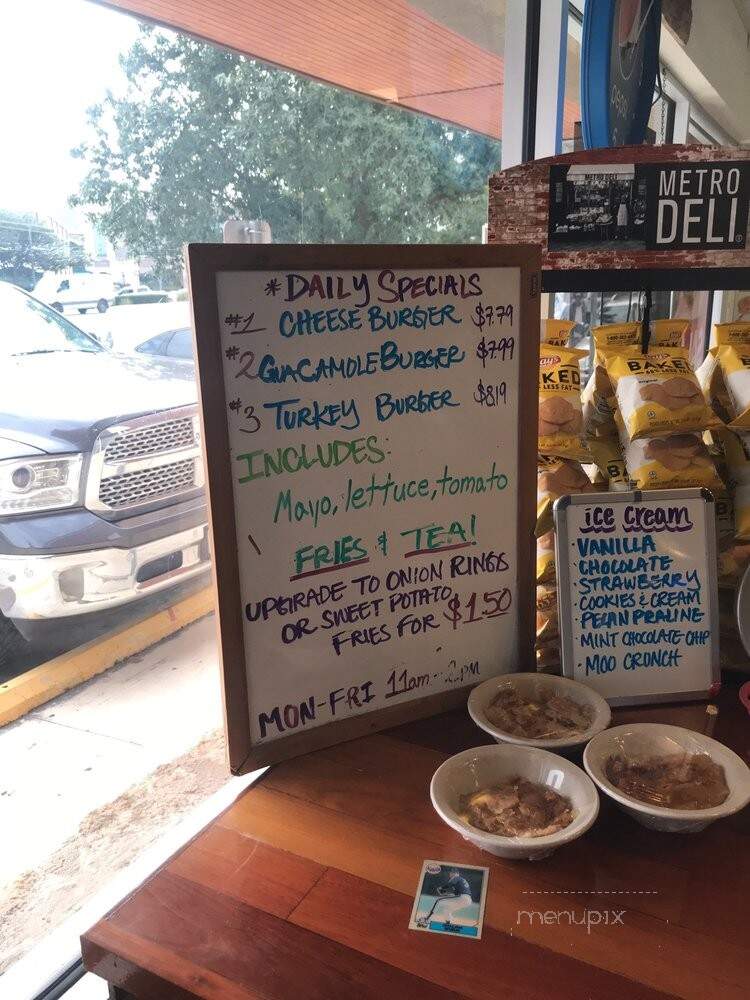 * DAILY SPECIALS
#1 CHEESE BURGER $7.79
#2 GUACAMOLE BURGER $7.99
#3 TURKEY BURGER $8.19
INCLUDES:
Mayo, lettuce, tomato
FRIES & TEA!
UPGRADE TO ONION RINGS
OR SWEET POTATO
FRIES FOR $1.50
MON-FRI 11am - 2pm
METRO
DELI
BAKED
ice cream
·VANILLA
·CHOCOLATE
·STRAWBERRY
·COOKIES & CREAM
·PECAN PRALINE
·MINT CHOCOLATE CHIP
·MOO CRUNCH
menupix